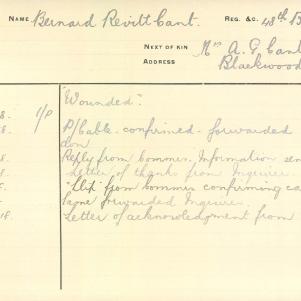 NAME Bernard Revitt Cant. REG. &C. 48th B
NEXT OF KIN Mrs A. G. Cant
ADDRESS Blackwood
"Wounded."
8. I/P P/Cable confirmed forwarded
8. don
8. Reply from Commes. Information sen
8. Letter of thanks from Inquirer
8. "Slip" from Commes confirming ca
same forwarded Inquirer.
18. Letter of acknowledgment from